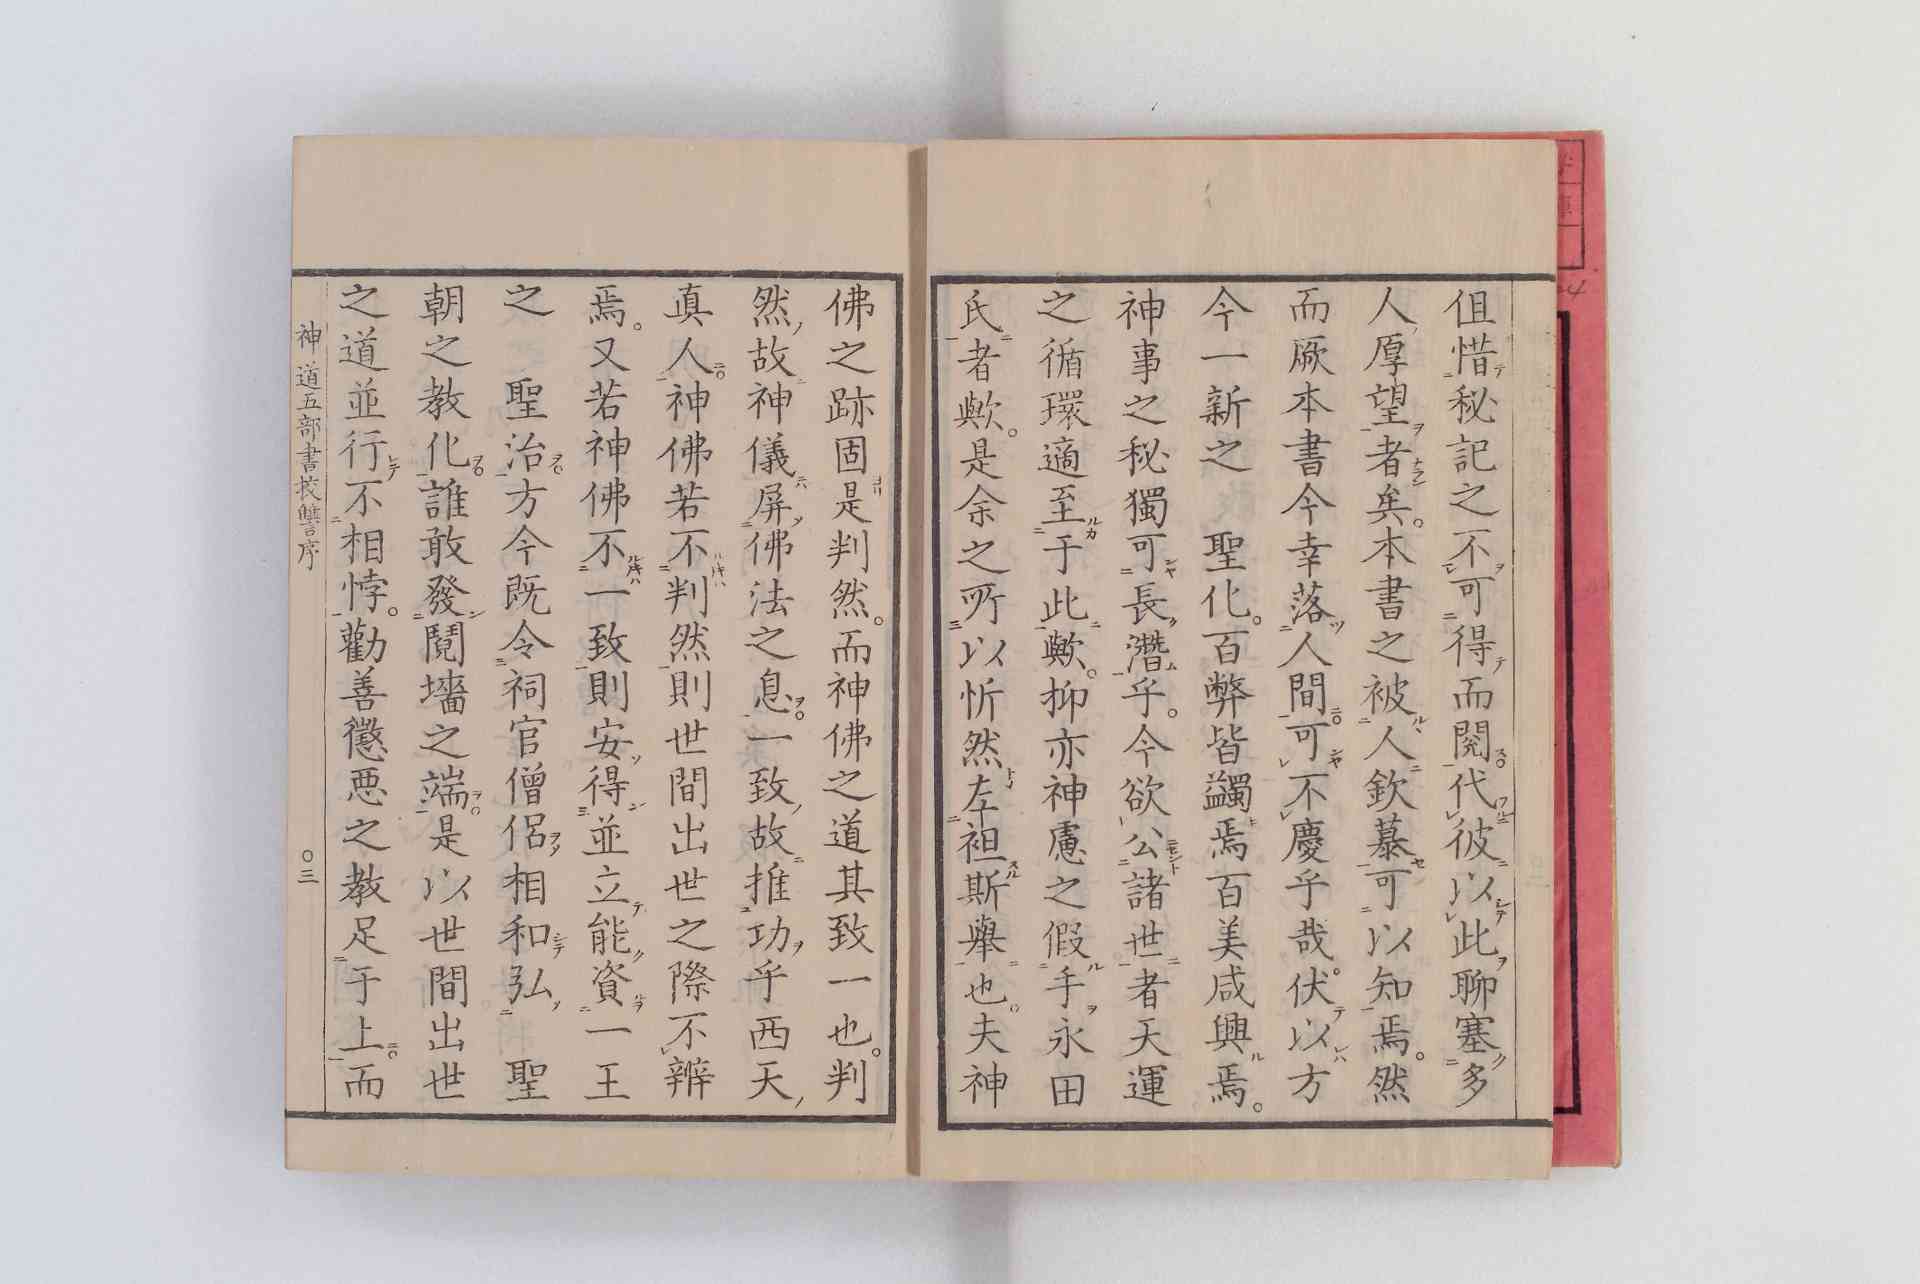 伹惜秘記之不可得而閲代彼以此聊塞多
人厚望者矣。本書之被人欽慕可以知焉。然
而厥本書今幸落人間可不慶乎哉伏以方
今一新之　聖化。百弊皆蠲焉百美咸興焉。
神事之秘獨可長潛乎。今欲公諸世者天運
之循環適至于此歟。抑亦神慮之假手永田
氏者歟。是余之所以忻然左袒斯舉也。夫神
佛之跡固是判然。而神佛之道其致一也。判
然故神儀屏佛法之息一致故推功乎西天
真人神佛若不判然則世間出世之際不辨
焉。又若神佛不一致則安得並立能資一王
之　聖治方今既令祠官僧侶相和弘　聖
朝之教化誰敢發鬩墻之端是以世間出世
之道並行不相悖。勸善懲惡之教足于上而
神道五部書挍讐序　〇三